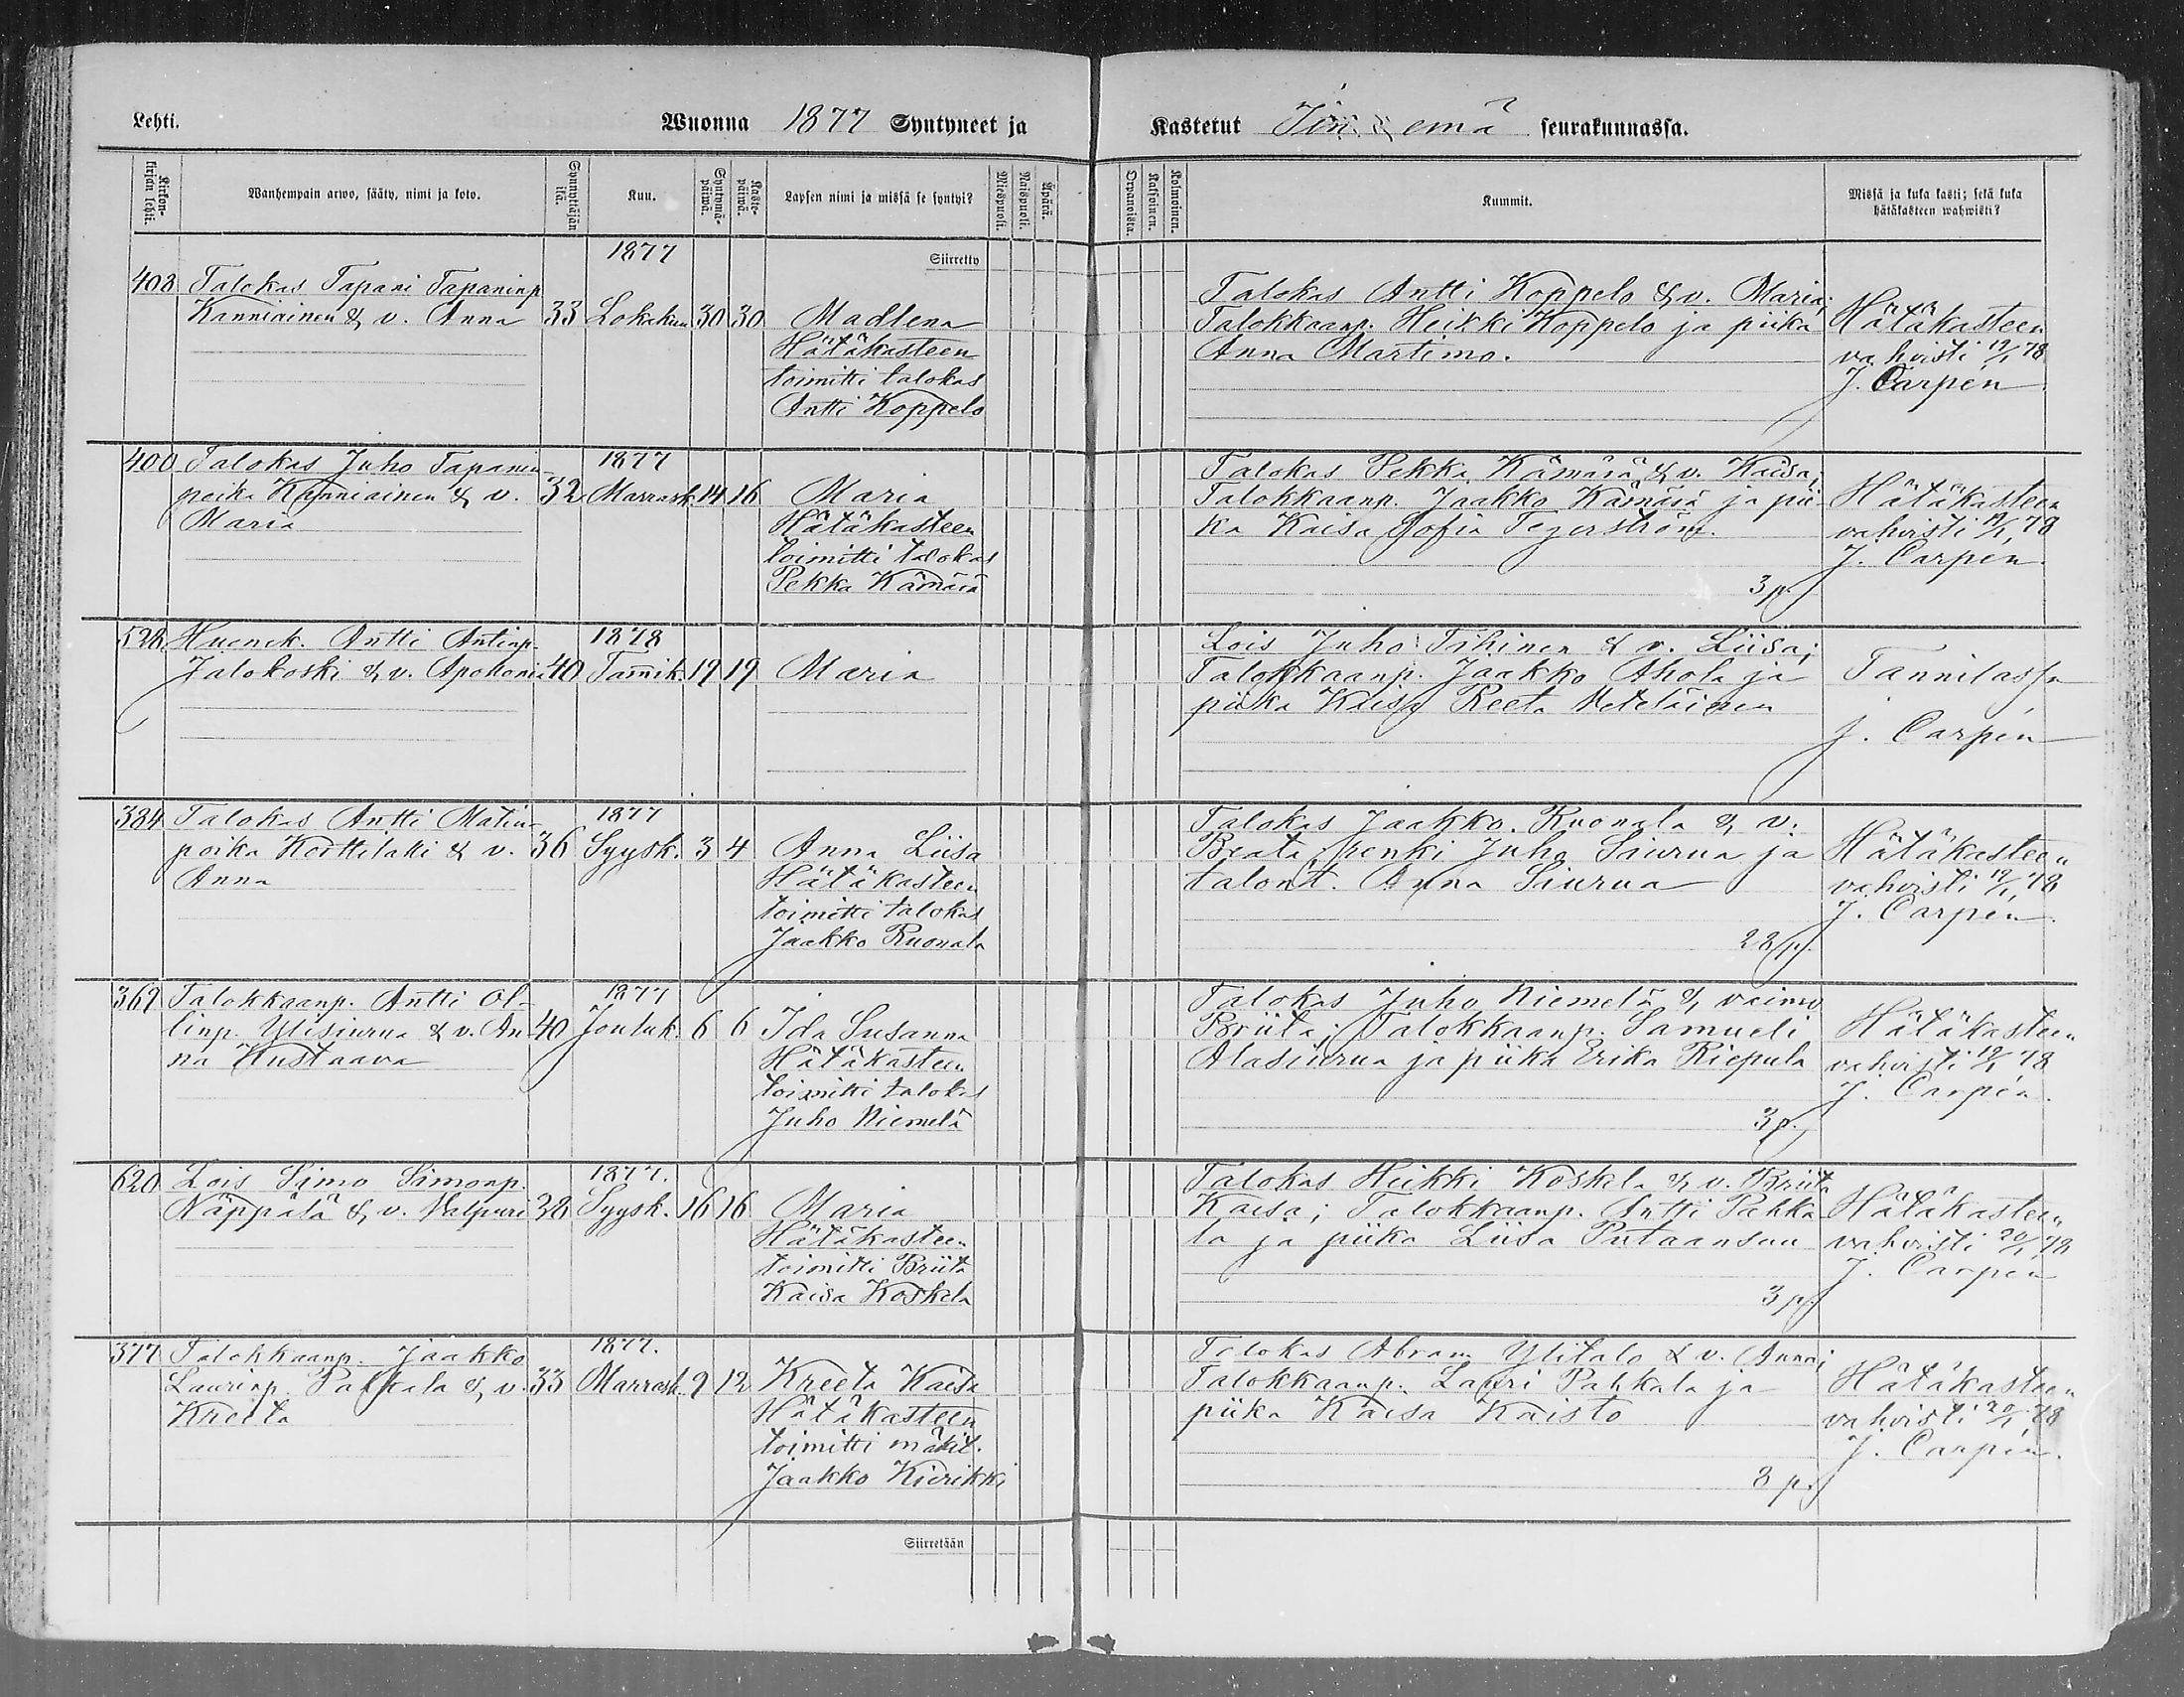 Lehti.
Wuonna 1877 Syntyneet ja
Kastetut emä seurakunnassa.
Kirkonkirjan lehti.
Wanhempain arwo, sääty, nimi ja koto.
Synnyttäjän ikä.
Kuu.
Syntymä-päiwä.
Kaste-päiwä.
Lapsen nimi ja missä se syntyi?
Miespuoli.
Waispuoli.
Äpärä.
Orpanoista.
Kaksoinen.
Kolmoinen.
Kummit.
Missä ja kuka kasti; sekä kuka
hätäkasteen wahwisti?
Siirretty
1877
403 Talokas Tapani Tapaninp
Kanniainen & v. Anna 33 Lokakuu 30 30 Madlena
Hätäkasteen
toimitti talokas
Antti Koppelo
Talokas Antti Koppelo & v. Maria;
Talokkaanp. Heikki Koppelo ja piika
Anna Martimo.
Hätäkasteen
vahvisti 19/1 78
J. Carpén
400 Talokas Juho Tapanin-
poika Kanniainen & v.
Maria
1877
32 Marrask. 14 16 Maria
Hätäkasteen
toimitti talokas
Pekka Kämärä
Talokas Pekka Kämärä & v. Kaisa;
Talokkaanp. Jaakko Kämärä ja pii
ka Kaisa Sofia Tegerström.
3 p.
Hätäkasteen
vahvisti 19/1 78
J. Carpén
528 Huonek. Antti Antinp.
Jalokoski & v. Apolonia 40
1878
Tammik. 19 19 Maria
Lois Juho Tihinen & v. Liisa;
Talokkaanp. Jaakko Ahola ja
piika Kaisa Reeta Veteläinen
Tannilassa
J. Carpén
384 Talokas Antti Matin-
poika Korttilaki & v.
Anna
1877
36 Syysk. 3 4 Anna Liisa
Hätäkasteen
toimitti talokas
Jaakko Ruonala
Talokas Jaakko Ruonala & v.
Beata, renki Juho Siurua ja
talont. Anna Siurua
28 p.
Hätäkasteen
vahvisti 19/1 78
J. Carpén
369 Talokkaanp. Antti Ol-
linp. Ylisiurua & v. An
na Kustaava
1877
40 Jouluk. 6 6 Ida Susanna
Hätäkasteen
toimitti talokas
Juho Niemelä
Talokas Juho Niemelä & vaimo
Briita; Talokkaanp. Samueli
Alasiurua ja piika Erika Riepula
3 p.
Hätäkasteen
vahvisti 19/1 78
J. Carpén
620 Lois Simo Simonp.
Näppälä & v. Valpuri 38
1877.
Syysk. 16 16 Maria
Hätäkasteen
toimitti Briita
Kaisa Koskela
Talokas Heikki Koskela & v. Briita
Kaisa; Talokkaanp. Antti Pahka
la ja piika Liisa Putaansuu
3 p.
Hätäkasteen
vahvisti 20/1 78
J. Carpén
377 Talokkaanp. Jaakko
Laurinp. Pahkala & v.
Kreeta
1877.
33 Marrask. 9 12 Kreeta Kaisa
Hätäkasteen
toimitti mäkit.
Jaakko Kierikki
Talokas Abram Ylitalo & v. Anna;
Talokkaanp. Lauri Pahkala ja
piika Kaisa Kaisto
3 p.
Hätäkasteen
vahvisti 20/1 78
J. Carpén.
Siirretään